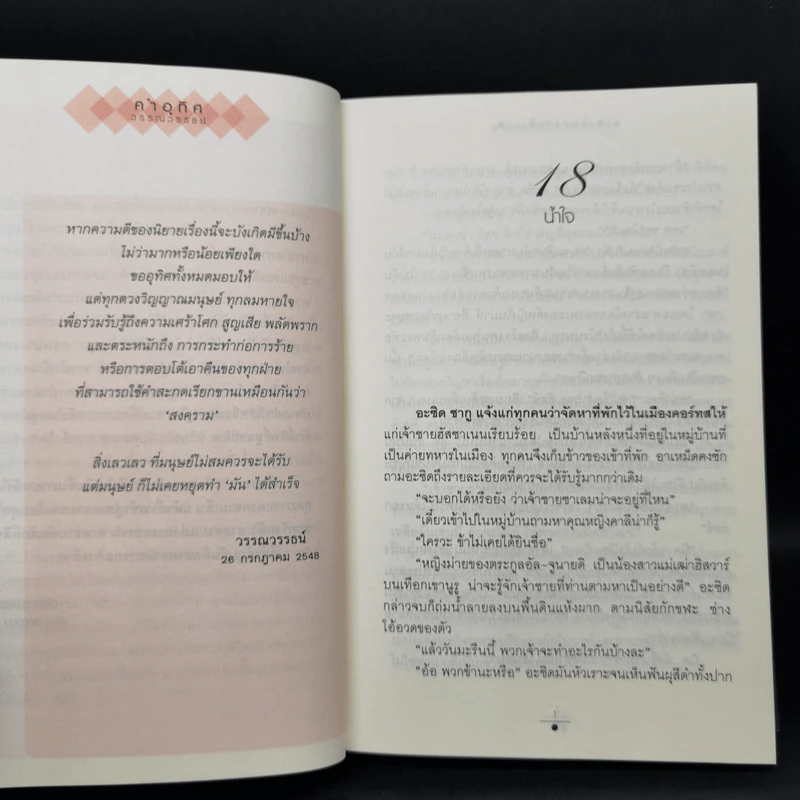 คำอุทิศ
วรรณวรรธน์
หากความดีของนิยายเรื่องนี้จะบังเกิดมีขึ้นบ้าง
ไม่ว่ามากหรือน้อยเพียงใด
ขออุทิศทั้งหมดมอบให้
แด่ทุกดวงวิญญาณมนุษย์ ทุกลมหายใจ
เพื่อร่วมรับรู้ถึงความเศร้าโศก สูญเสีย พลัดพราก
และตระหนักถึง การกระทำก่อการร้าย
หรือการตอบโต้เอาคืนของทุกฝ่าย
ที่สามารถใช้คำสะกดเรียกขานเหมือนกันว่า
‘สงคราม’
สิ่งเลวเลว ที่มนุษย์ไม่สมควรจะได้รับ
แต่มนุษย์ ก็ไม่เคยหยุดทำ ‘มัน’ ได้สำเร็จ
วรรณวรรธน์
26 กรกฎาคม 2548
18
น้ำใจ
อะซิด ชากู แจ้งแก่ทุกคนว่าจัดหาที่พักไว้ในเมืองคอร์ทสให้
แก่เจ้าชายฮัสซาเนนเรียบร้อย เป็นบ้านหลังหนึ่งที่อยู่ในหมู่บ้านที่
เป็นค่ายทหารในเมือง ทุกคนจึงเก็บข้าวของเข้าที่พัก อาเหม็ดคงซัก
ถามอะซิดถึงรายละเอียดที่ควรจะได้รับรู้มากกว่าเดิม
“จะบอกได้หรือยัง ว่าเจ้าชายซาเลมน่าจะอยู่ที่ไหน”
“เดี๋ยวเข้าไปในหมู่บ้านถามหาคุณหญิงคาลีน่าก็รู้”
“ใครวะ ข้าไม่เคยได้ยินชื่อ”
“หญิงม่ายของตระกูลอัล-จูนายดิ เป็นน้องสาวแม่เฒ่าฮัสวาร์
บนเทือกเขานูรู น่าจะรู้จักเจ้าชายที่ท่านตามหาเป็นอย่างดี” อะซิด
กล่าวจบก็ถ่มน้ำลายลงบนพื้นดินแห้งผาก ตามนิสัยกักขฬะ ช่าง
โอ้อวดของตัว
“แล้ววันมะรืนนี้ พวกเจ้าจะทำอะไรกันบ้างละ”
“อ้อ พวกข้านะหรือ” อะซิดมันหัวเราะจนเห็นฟันผุสีดำทั้งปาก
1